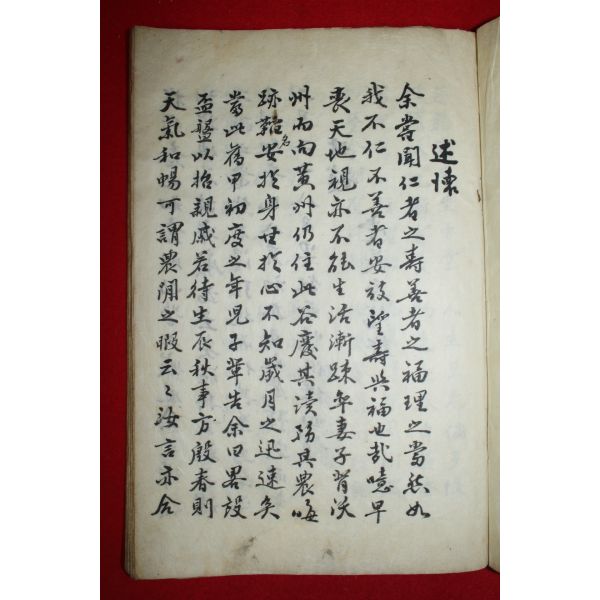 述懷
余嘗聞仁者之壽善者之福理之當然如
我不仁不善者安敢望壽與福也哉噫早
喪天地視亦不能生活漸踈率妻子背沃
州而向黃州仍住此谷廢其讀隊其農晦
跡韜名安於身世於心不知歲月之迅速矣
當此舊甲初度之年兒子輩告余曰畧設
盃盤以招親戚若待生辰秋事方殷春則
天氣和暢可謂農閒之暇云〻汝言亦合